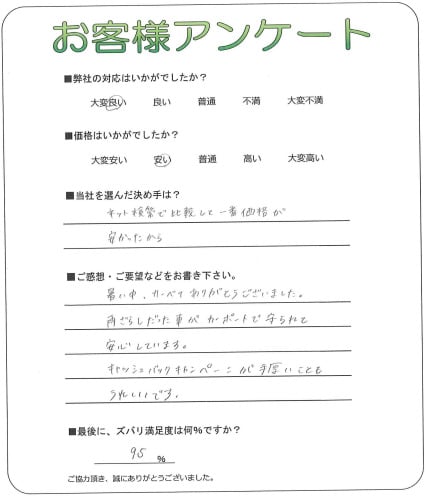 お客様アンケート
■弊社の対応はいかがでしたか?
大変良い 良い 普通 不満 大変不満
■価格はいかがでしたか?
大変安い 安い 普通 高い 大変高い
■当社を選んだ決め手は?
ネット検索で比較して一番価格が
安かったから
■ご感想・ご要望などをお書き下さい。
暑い中、ありがとうございました。
雨ざらしだった車がカーポートで守られて
安心しています。
キャッシュバックキャンペーンが手厚いことも
うれしいです。
■最後に、ズバリ満足度は何%ですか?
95 %
ご協力頂き、誠にありがとうございました。